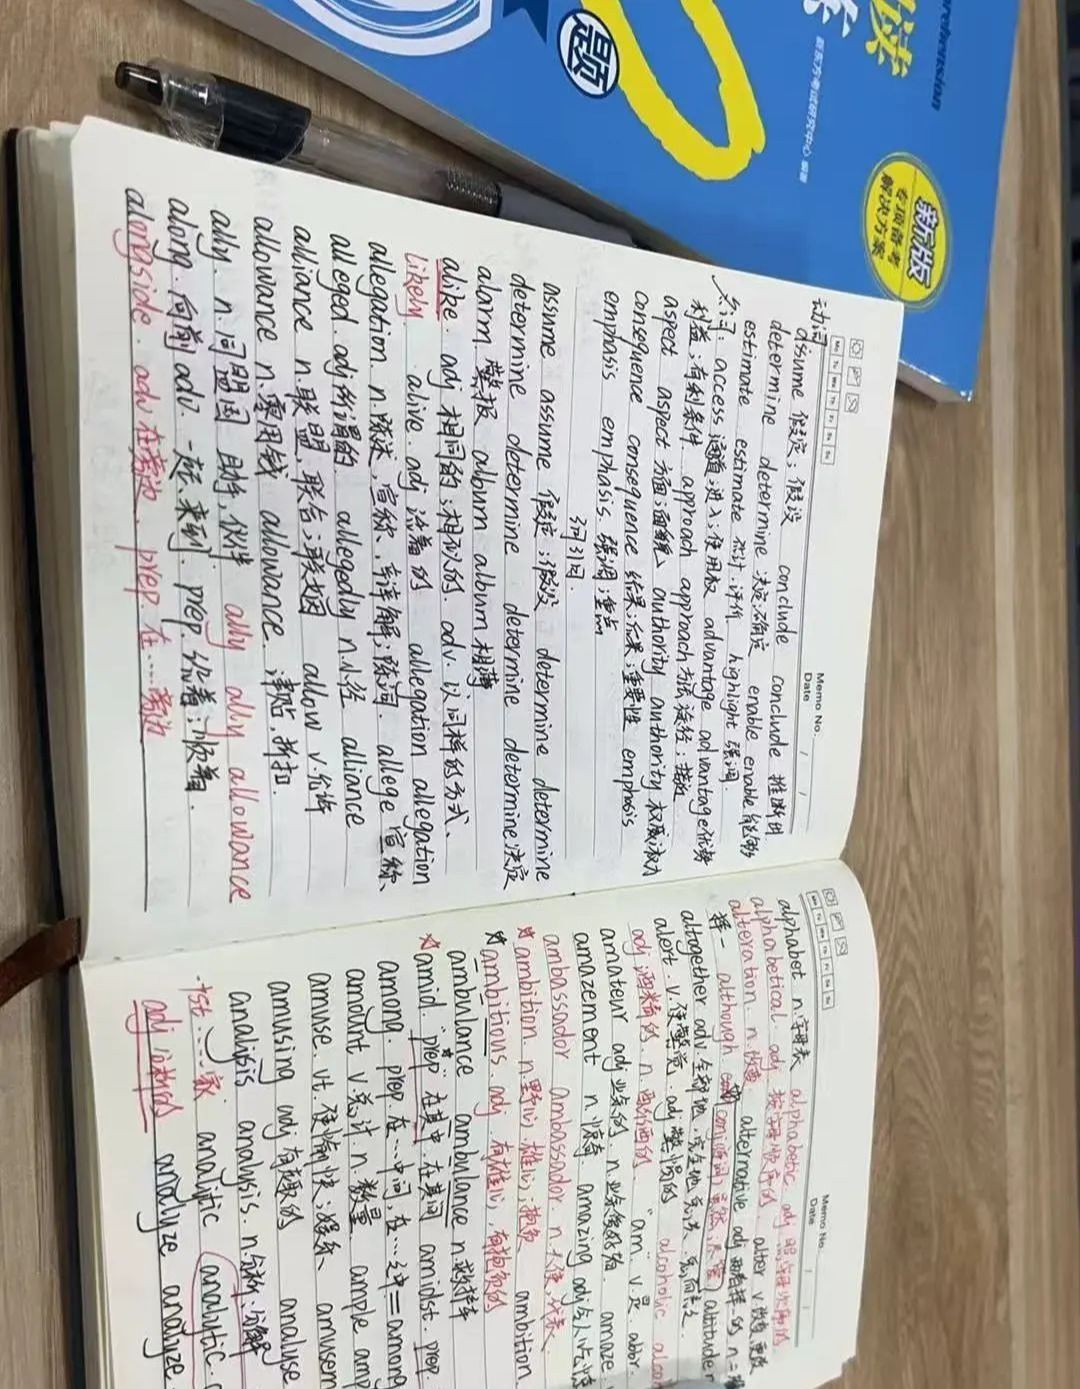 rehension
读
题
新东方考试研究中心 编著
新版
专项备考
解决方案
Memo No.
Date / /
动词
assume 假定;假设 conclude conclude 推断出
determine determine 决定;确定 enable enable 能够
estimate estimate 估计;评价 highlight 强调
名词: access 通道;进入;使用权 advantage advantage 优势
利益;有利条件 approach approach 方法;途径;接近
aspect aspect 方面;面貌 authority authority 权威;权力
consequence consequence 结果;后果;重要性 emphasis
emphasis emphasis 强调;重点
assume assume 假定;假设 determine determine
determine determine determine determine 决定
alarm 警报 album album 相薄
alike adj 相同的;相似的 adv. 以同样的方式、
likely alive. adj 活着的 allegation allegation
allegation n.陈述,宣称、辩解;陈词. allege 宣称、
alleged adj所谓的 allegedly n.小径 alliance
alliance n.联盟,联合;联姻 allow v.允许
allowance n.零用钱 allowance. 津贴,折扣.
ally. n.同盟国 助手,伙伴 ally ally allowance
along. 向前 adv. 一起.来到. prep 沿着;顺着.
alongside. adv 在旁边. prep. 在……旁边
Memo No.
Date / /
alphabet n.字母表 alphabetic adj
alphabetical adj 按字母顺序的. alter v 改变
alteration n.改变. alternative adj n=
择一 although conj 虽然,尽管 altitude
altogether adv 全部地,完全地
alert. v.使警觉. adj 警惕的 alcoholic
adj 酒精的. n "am." v.是.
amateur adj 业余的 n.业余爱好者. amaze.
amazement n.惊奇. amazing adj
ambassador ambassador. n 大使,代表.
ambition. n.野心,雄心;抱负 ambition
ambitious. adj. 有雄心,有抱负的
ambulance ambulance n.救护车
amid. prep. 在其中.在其间 amidst. prep.
among. prep. 在…中间,在…之中=among
amount v.总计.n.数量. ample amp
amuse. vt. 使愉快;娱乐. amusem
amusing adj 有趣的 analyse
analysis analysis. n.分析;分解
analytic analytic.
adj 分析的 analyze analyze